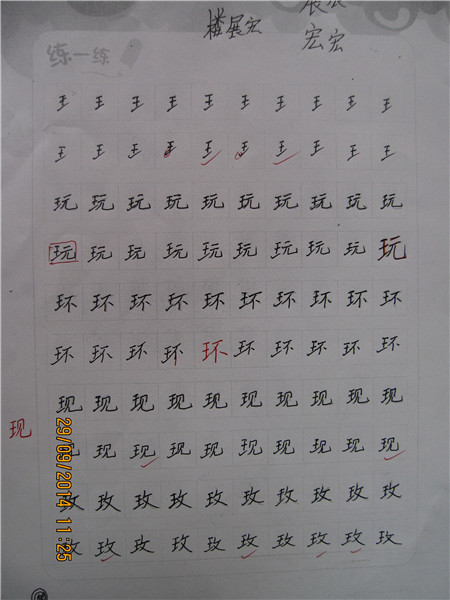 楼展宏
宏宏
练一练
王王王王王王王王王王
王王王王王王王王王王
玩玩玩玩玩玩玩玩玩玩
玩玩玩玩玩玩玩玩玩玩
环环环环环环环环环环
环环环环环环环环环环
现现现现现现现现现现
现
现现现现现现现现现现
玫玫玫玫玫玫玫玫玫玫
玫玫玫玫玫玫玫玫玫玫
29/09/2014 11:25